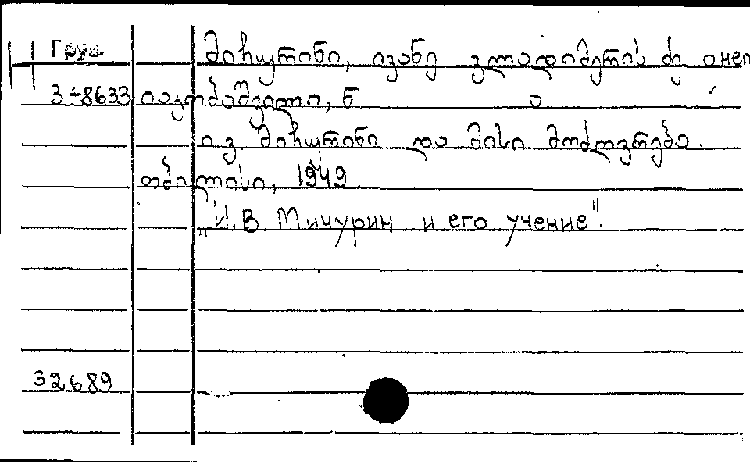 Груз
მიჩურინი, ივანე ვლადიმერის ძე
3-8633 იაკობაშვილი, ნ
ი. ვ. მიჩურინი და მისი მოძღვრება.
თბილისი, 1949
„И. В Мичурин и его учение".
32689